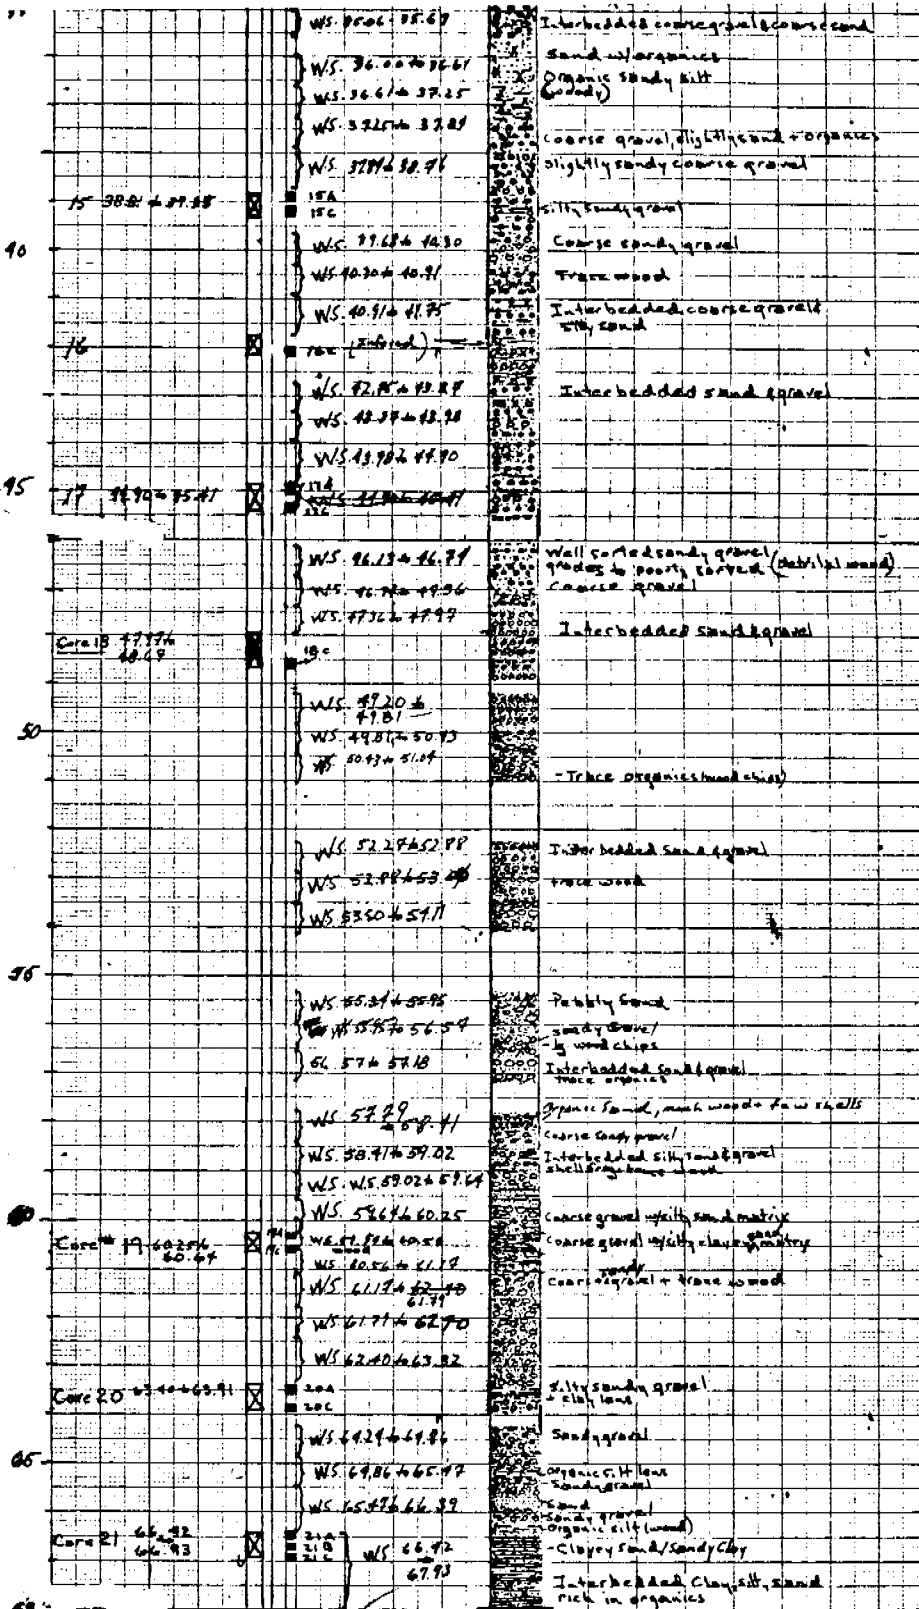 W.S. 35.06 35.67 Interbedded coarse gravel & coarse sand
Sand w/organics
W.S. 36.00 to 36.61 Organic sandy silt
(woody)
W.S. 36.61 to 37.25
W.S. 37.25 to 37.89
coarse gravel, slightly sand + organics
W.S. 37.89 to 38.76 slightly sandy coarse gravel
15 38.81 to 15A
15C silty sandy gravel
40 W.S. 39.68 to 40.30 Coarse sandy gravel
W.S. 40.30 to 40.91 Trace wood
W.S. 40.91 to 41.75 Interbedded coarse gravel &
silty sand
16
W.S. to Interbedded sand & gravel
W.S. 43.37 to 43.98
W.S. 43.98 to 44.90
45 17 44.90 to 45.41 17A
W.S. 46.13 to 46.74 Well sorted sandy gravel
grades to poorly sorted (detrital wood)
W.S. 46.74 to 47.36 coarse gravel
W.S. 47.36 to 47.97 Interbedded sand & gravel
Core 18 47.97 to
48.69 18C
W.S. 49.20 to
49.81
50 W.S. 49.81 to 50.43
W.S. 50.43 to 51.04 - Trace organics (wood chips)
W.S. 52.27 to 52.88 Interbedded Sand & gravel
W.S. 52.88 to 53.50 trace wood
W.S. 53.50 to 54.11
W.S. 55.34 to 55.95 Pebbly Sand
W.S. 55.95 to 56.57 sandy gravel
wood chips
56.57 to 57.18 Interbedded Sand & gravel
trace organics
W.S. 57.79
to 58.41 Organic Sand, much wood + few shells
Coarse sandy gravel
W.S. 58.41 to 59.02 Interbedded silty sand & gravel
W.S. W.S. 59.02 to 59.64
60 W.S. 59.64 to 60.25 Coarse gravel w/silty sand matrix
Core 19 60.25 to
60.64 Coarse gravel w/silty clayey sand matrix
W.S. 60.56 to 61.17
W.S. 61.17 to
61.79 Coarse sandy gravel + trace wood
W.S. 61.79 to 62.40
W.S. 62.40 to 63.32
Core 20 63.40 to 63.91 20A silty sandy gravel
20C + clay lens
W.S. 64.24 to 64.86 Sandy gravel
65 W.S. 64.86 to 65.47 organic silt lens
Sandy gravel
W.S. 65.47 to 66.39 Sand
Sandy gravel
organic silt (wood)
Core 21 66.42
66.93 21A
21B
21C W.S. 66.42
to
67.93 - Clayey Sand/Sandy Clay
Interbedded Clay, silt, sand
rich in organics